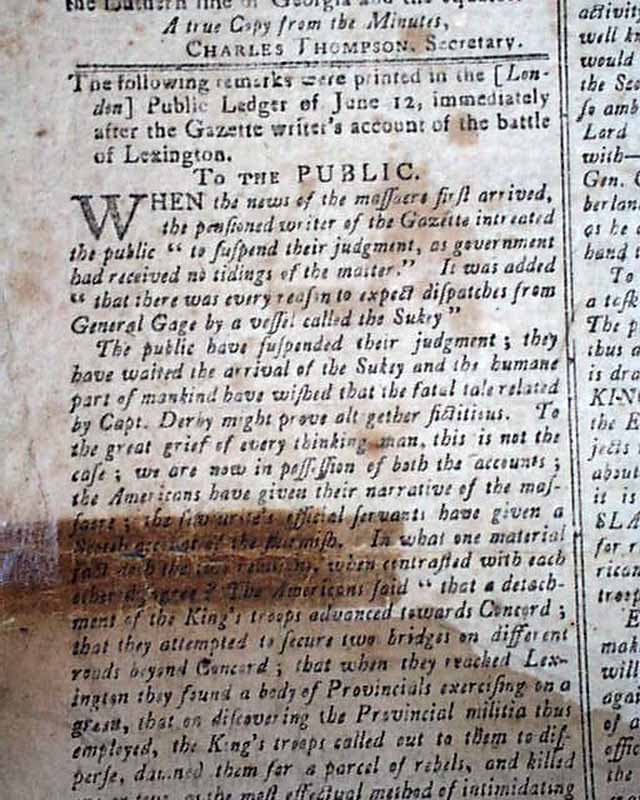 the Eastern line of Georgia and the equator.
A true Copy from the Minutes,
CHARLES THOMPSON, Secretary.
The following remarks were printed in the [Lon-
don] Public Ledger of June 12, immediately
after the Gazette writer's account of the battle
of Lexington.
To THE PUBLIC.
WHEN the news of the maſſacre firſt arrived,
the penſioned writer of the Gazette intreated
the public " to ſuſpend their judgment, as government
had received no tidings of the matter." It was added
" that there was every reaſon to expect diſpatches from
General Gage by a veſſel called the Sukey"
The public have ſuſpended their judgment ; they
have waited the arrival of the Sukey and the humane
part of mankind have wiſhed that the fatal tale related
by Capt. Derby might prove altogether fictitious. To
the great grief of every thinking man, this is not the
caſe ; we are now in poſſeſſion of both the accounts ;
the Americans have given their narrative of the maſ-
ſacre ; the favourite's official ſervants have given a
Scotch account of the ſkirmiſh. In what one material
fact doth the two relations, when contraſted with each
other diſagree ? The Americans ſaid " that a detach-
ment of the King's troops advanced towards Concord ;
that they attempted to ſecure two bridges on different
roads beyond Concord ; that when they reached Lex-
ington they found a body of Provincials exerciſing on a
green, that on diſcovering the Provincial militia thus
employed, the King's troops called out to them to diſ-
perſe, damned them for a parcel of rebels, and killed
as the moſt effectual method of intimidating
activit
well kn
would
the Sec
ſo amb
Lord
with—
Gen. C
berlan
as he a
hand t
To
a teſt
The p
thus a
is dra
KIN
the E
jects
about
it is
SLA
for r
rican
troop
E
mak
will
agai
of a
offic
the